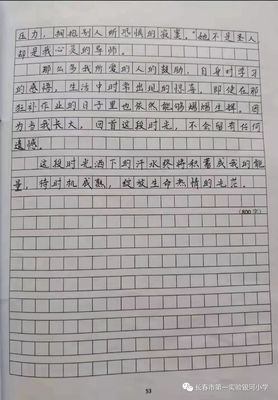 压力，拥抱别人所恐惧的寂寞。”她不是圣人
却是我心灵的导师。
那么多我所爱的人的鼓励，自身对学习
的感悟，生活中时常出现的惊喜，即使在那
狂补作业的日子里也依然能够熠熠生辉。因
为当我长大，回首这段时光，不会留有任何
遗憾。
这段时光洒下的汗水终将积蓄成我的能
量，待时机成熟，绽放生命热情的光芒。
(800字)
53
长春市第一实验银河小学